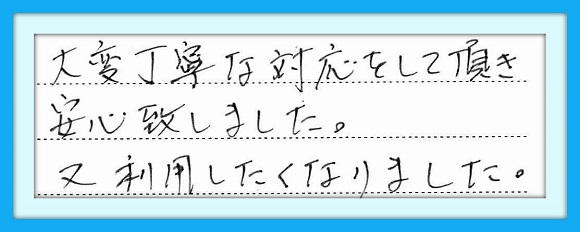 大変丁寧な対応をして頂き
安心致しました。
又利用したくなりました。